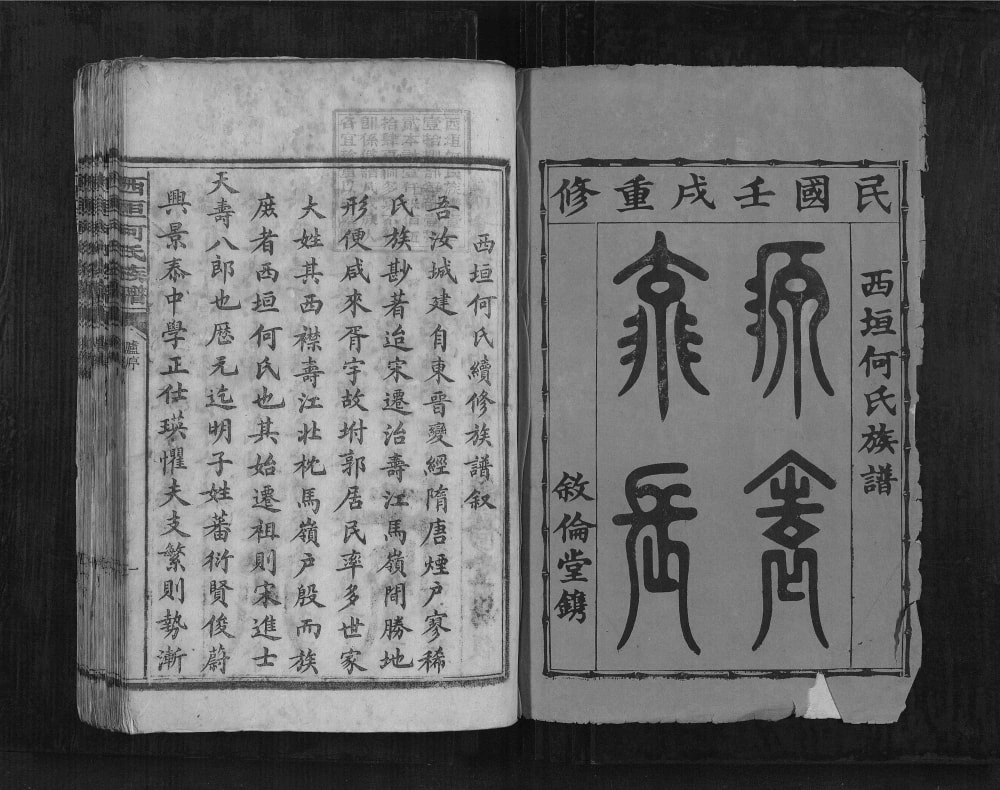 民國壬戌重修
西垣何氏族譜
源遠
流長
敘倫堂鐫
西垣何氏續修族譜叙
吾汝城建自東晉變經隋唐煙戶寥稀
氏族尠著迨宋遷治壽江馬嶺間勝地
形便咸來胥宇故坿郭居民率多世家
大姓其西襟壽江壯枕馬嶺戶殷而族
庶者西垣何氏也其始遷祖則宋進士
天壽八郎也歷元迄明子姓蕃衍賢俊蔚
興景泰中學正仕瑛懼夫支繁則勢漸
西垣何氏族譜